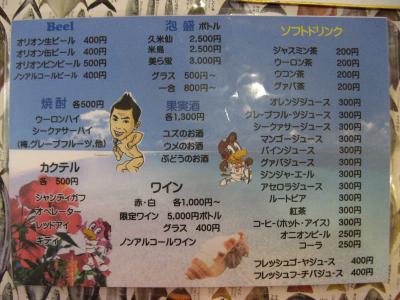 Beel
オリオン生ビール 400円
オリオン缶ビール 400円
オリオンビンビール 500円
ノンアルコールビール 400円
焼酎 各500円
ウーロンハイ
シークァサーハイ
(梅,グレープフルーツ,他)
カクテル
各 500円
シャンディガフ
オペレーター
レッドアイ
キティ
泡盛 ボトル
久米仙 2,500円
米島 2,500円
美ら蛍 3,000円
グラス 500円〜
一合 800円〜
果実酒
各1,300円
ユズのお酒
ウメのお酒
ぶどうのお酒
ワイン
赤・白 各1,000円〜
限定ワイン 5,000円ボトル
グラス 400円
ノンアルコールワイン
ソフトドリンク
ジャスミン茶 200円
ウーロン茶 200円
ウコン茶 200円
グァバ茶 200円
オレンジジュース 300円
グレープフルーツジュース 300円
シークァサージュース 300円
マンゴージュース 300円
パインジュース 300円
グァバジュース 300円
ジンジャーエール 300円
アセロラジュース 300円
ルートビア 300円
紅茶 300円
コーヒー(ホット・アイス) 300円
オニオンビール 250円
コーラ 250円
フレッシュゴーヤジュース 400円
フレッシュフーチバジュース 400円